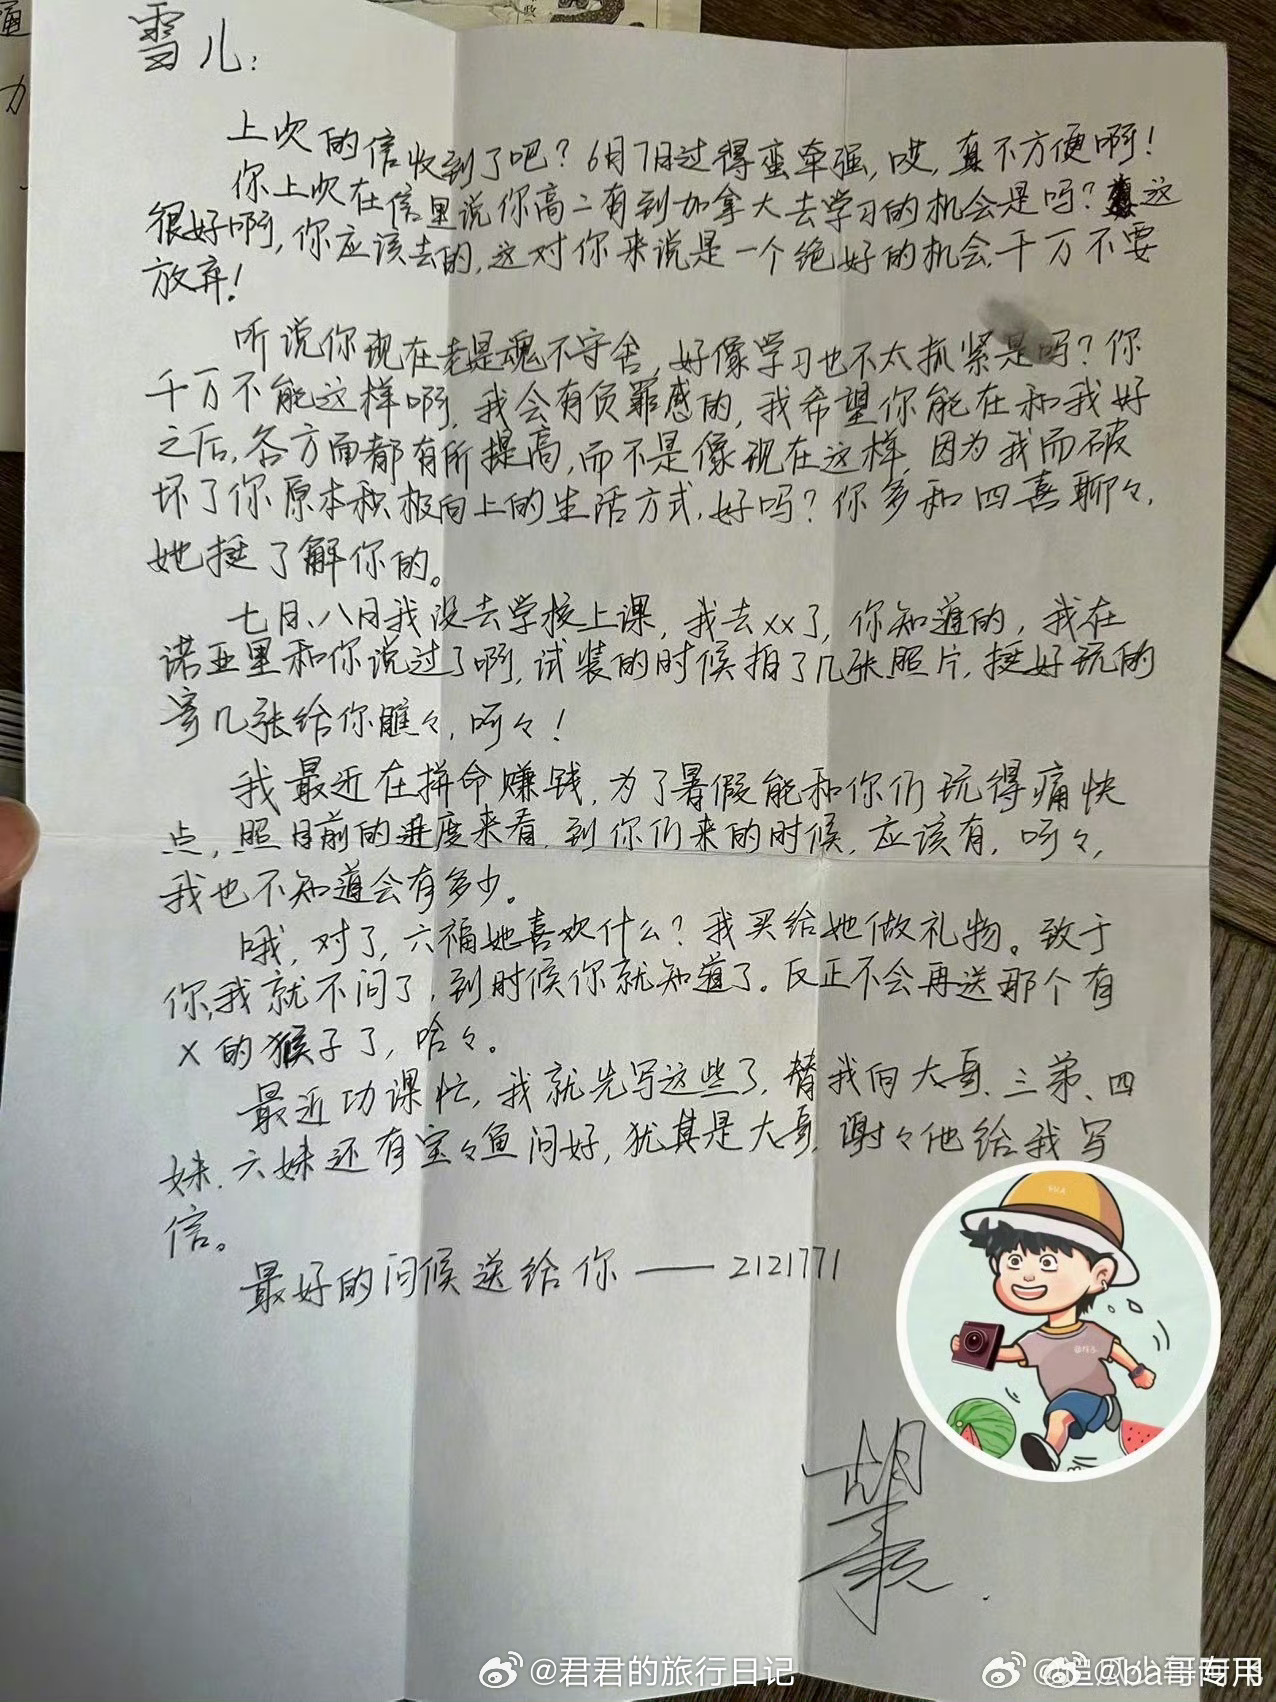 雪儿:
上次的信收到了吧?6月7日过得蛮牵强,哎,真不方便啊!
你上次在信里说你高二有到加拿大去学习的机会是吗?这
很好啊,你应该去的,这对你来说是一个绝好的机会,千万不要
放弃!
听说你现在老是魂不守舍,好像学习也不太抓紧是吗?你
千万不能这样啊,我会有负罪感的,我希望你能在和我好
之后,各方面都有所提高,而不是像现在这样,因为我而破
坏了你原本积极向上的生活方式,好吗?你多和四喜聊々,
她挺了解你的。
七月、八月我没去学校上课,我去xx了,你知道的,我在
诺亚里和你说过了啊,试装的时候拍了几张照片,挺好玩的
寄几张给你瞧々,呵々!
我最近在拼命赚钱,为了暑假能和你们玩得痛快
点,照目前的进度来看,到你们来的时候,应该有,呵々,
我也不知道会有多少。
哦,对了,六福她喜欢什么?我买给她做礼物。致于
你,我就不问了,到时候你就知道了。反正不会再送那个有
x的猴子了,哈々。
最近功课忙,我就先写这些了,替我向大哥、三弟、四
妹、六妹还有宝々鱼问好,犹其是大哥,谢々他给我写
信。
最好的问候送给你——2121771
胡
@君君的旅行日记